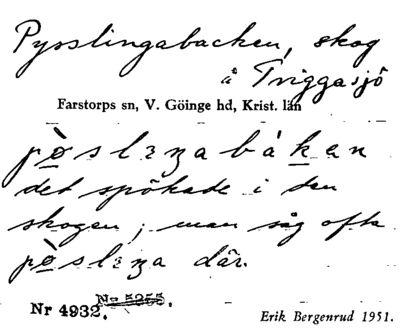 Pysslingabacken, skog
å Triggasjö
Farstorps sn, V. Göinge hd, Krist. län
pø̀slıŋabákan
det spökade i den
skogen; man såg ofta
pø̀slıŋa där.
Nr 4932. No 5255.
Erik Bergenrud 1951.